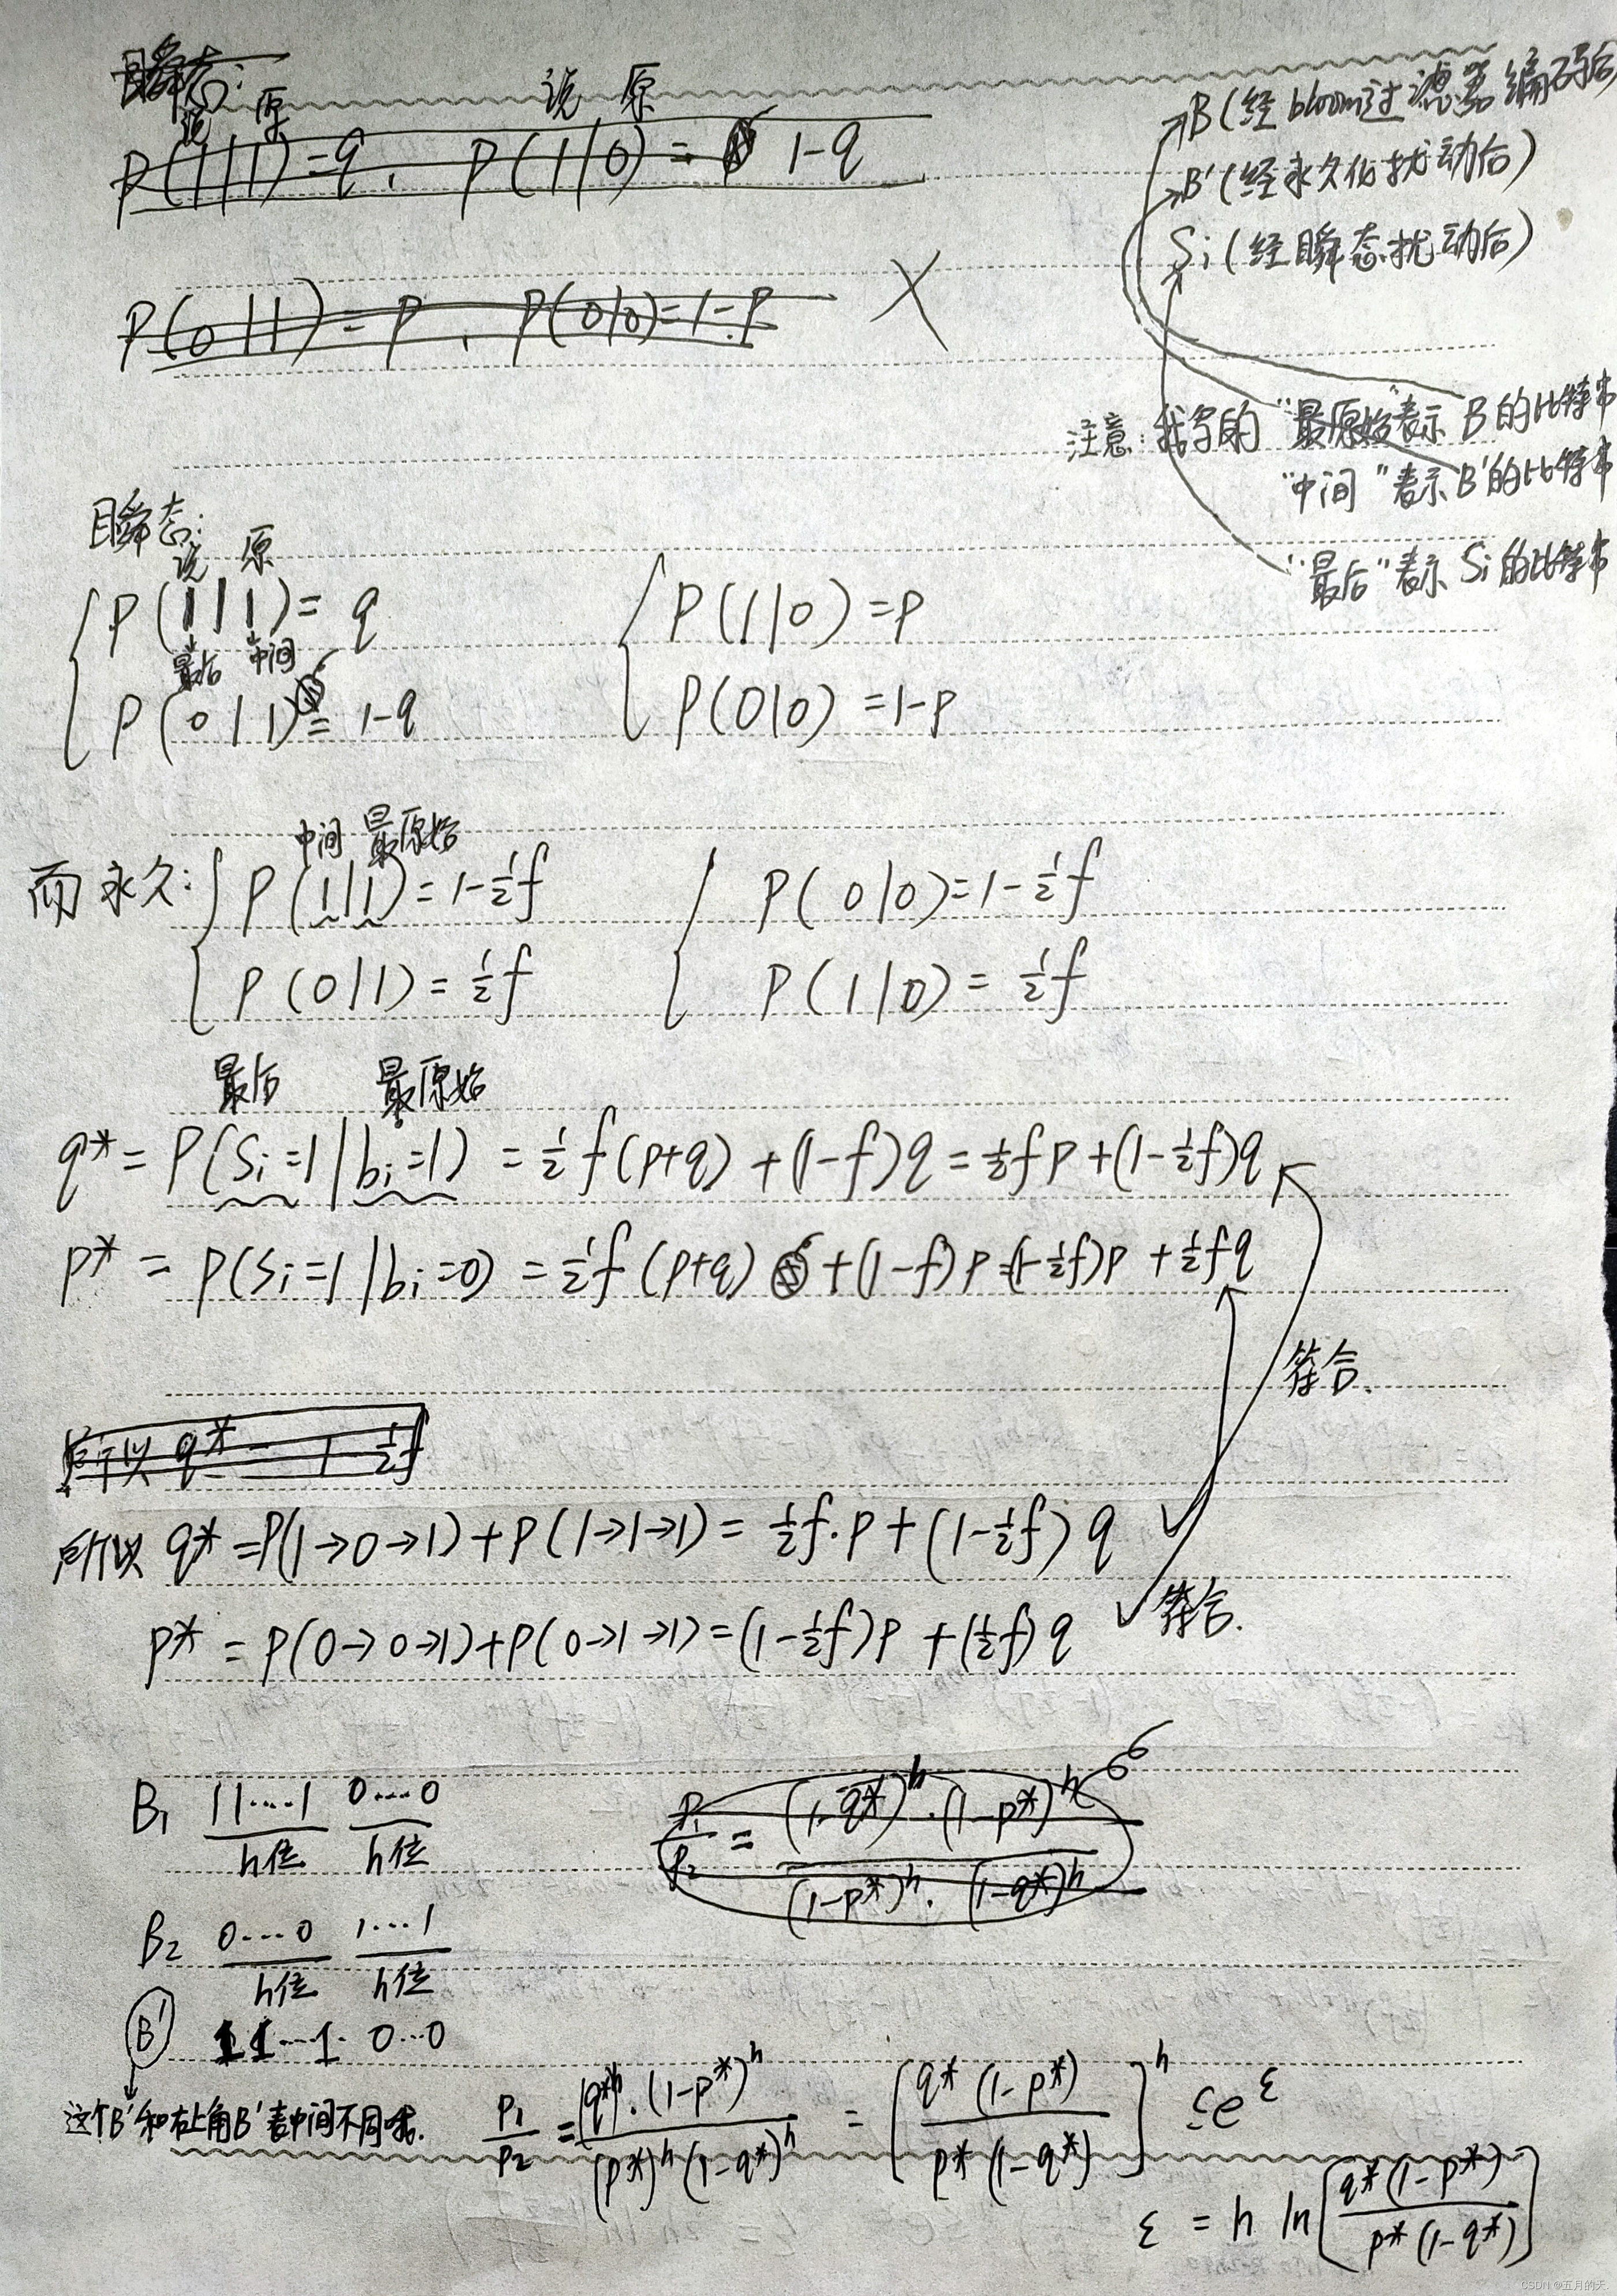 瞬态:
说 原 说 原
P(1|1)=q, P(1|0)= 1-q
P(0|1)=p, P(0|0)=1-p X
B(经bloom过滤器编码后
B'(经永久化扰动后)
Si(经瞬态扰动后)
注意:我写的“最原始”表示B的比特串
“中间”表示B'的比特串
“最后”表示Si的比特串
瞬态:
说 原
P(1|1)=q P(1|0)=p
最后 中间
P(0|1)=1-q P(0|0)=1-p
中间 最原始
而永久: P(1|1)=1-½f P(0|0)=1-½f
P(0|1)=½f P(1|0)=½f
最后 最原始
q*=P(Si=1|bi=1)=½f(p+q)+(1-f)q=½fp+(1-½f)q
p*=P(Si=1|bi=0)=½f(p+q)+(1-f)p=(1-½f)p+½fq
符合.
所以 q*= 1-½f
所以 q*=P(1→0→1)+P(1→1→1)=½f·p+(1-½f)q ✓
p*=P(0→0→1)+P(0→1→1)=(1-½f)p+(½f)q ✓符合.
B₁ 11····1 0····0
h位 h位
P₁/P₂ = (1-q*)^h·(1-p*)^h / (1-p*)^h·(1-q*)^h
B₂ 0····0 1···1
h位 h位
B' 11···1 0···0
这个B'和右上角B'表中间不同哦.
P₁/P₂ = (q*)^h·(1-p*)^h / (p*)^h(1-q*)^h = [q*(1-p*) / p*(1-q*)]^h ≤e^ε
ε = h ln[q*(1-p*) / p*(1-q*)]
CSDN @五月的天